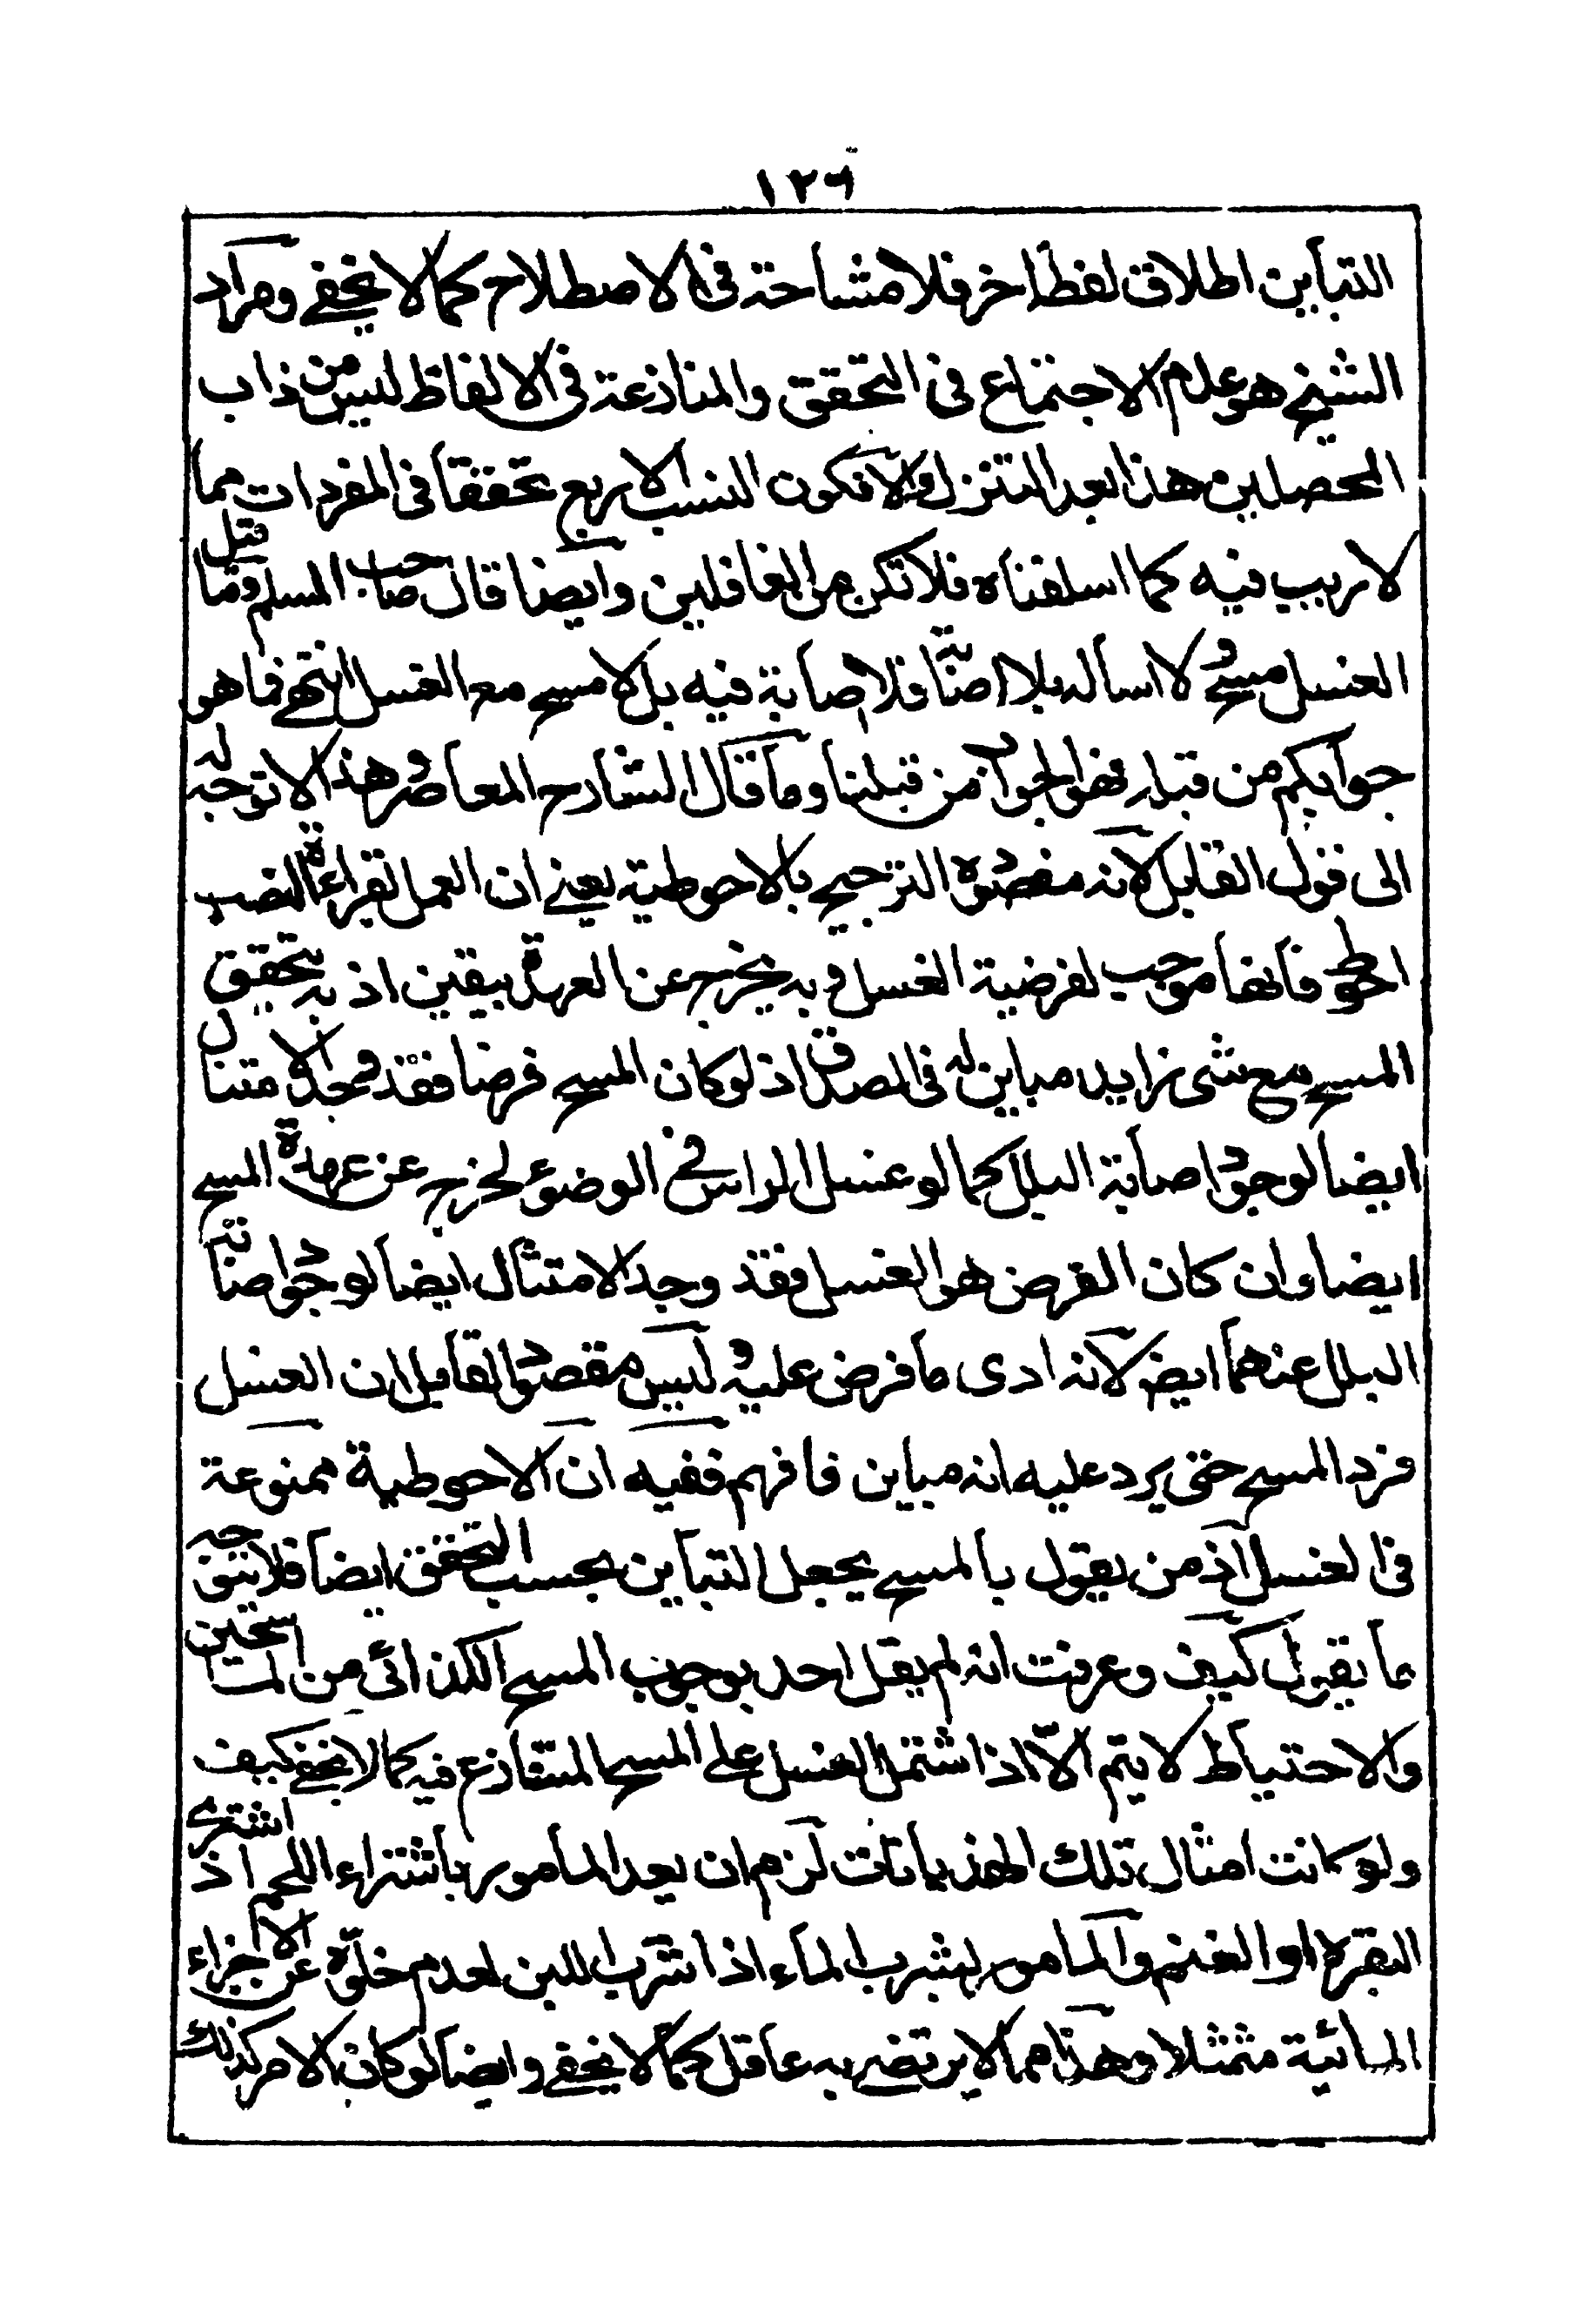 ١٢٦
التباين اطلاق لفظ اخر فلا مشاحة فى الاصطلاح كما لا يخفى ومراد
الشيخ هو عدم الاجتماع فى التحقق والمنازعة فى الالفاظ ليس من داب
المحصلين هذا بعد التنزل والا فكون النسب الاربع تحققا فى المفردات مما
لا ريب فيه كما اسلفناه فلا تكن من الغافلين وايضا قال صاحب المسلم وما قيل
الغسل مسح لاسالة بلا اصابة فلا اصابة فيه بل لا مسح مع الغسل انتهى فما هو
جوابكم من قبله فهو الجواب من قبلنا وما قال الشارح المعاصر وهذا لا توجه له
الى قول القايل لانه مقصوده الترجيح بالاحوطية يعنى ان العمل بقراءة النصب
احوط فانها موجب لفرضية الغسل وبه يخرج عن العهدة بيقين اذ به يتحقق
المسح مع شى زايد مباين له فى المصداق اذ لو كان المسح فرضا فقد وجد الامتثال
ايضا لوجود اصابة البلل كما لو غسل الراس فى الوضوء لخرج عن عهدة المسح
ايضا وان كان الفرض هو الغسل فقد وجد الامتثال ايضا لوجود اصابة
البلل عندهما ايضا لانه ادى ما فرض عليه وليس مقصود القايل ان الغسل
فرد المسح حتى يرد عليه انه مباين فافهم ففيه ان الاحوطية ممنوعة
فى الغسل اذ من يقول بالمسح يجعل التباين بحسب التحقق ايضا فلا يتوجه
ما يقول كيف وعرفت انه لم يقل احد بوجوب المسح الكذائى من الماسحين
والاحتياط لا يتم الا اذا اشتمل الغسل على المسح المتنازع فيه كما لا يخفى كيف
ولو كانت امثال تلك الهذيانات لزم ان يعد المامور باشتراء اللحم اذا اشترى
البقرة او الغنم والمامور بشرب الماء اذا شرب اللبن لعدم خلوه عن الاجزاء
المائية متمثلا وهذا مما لا يرتضى به عاقل كما لا يخفى وايضا لو كان الامر كذلك